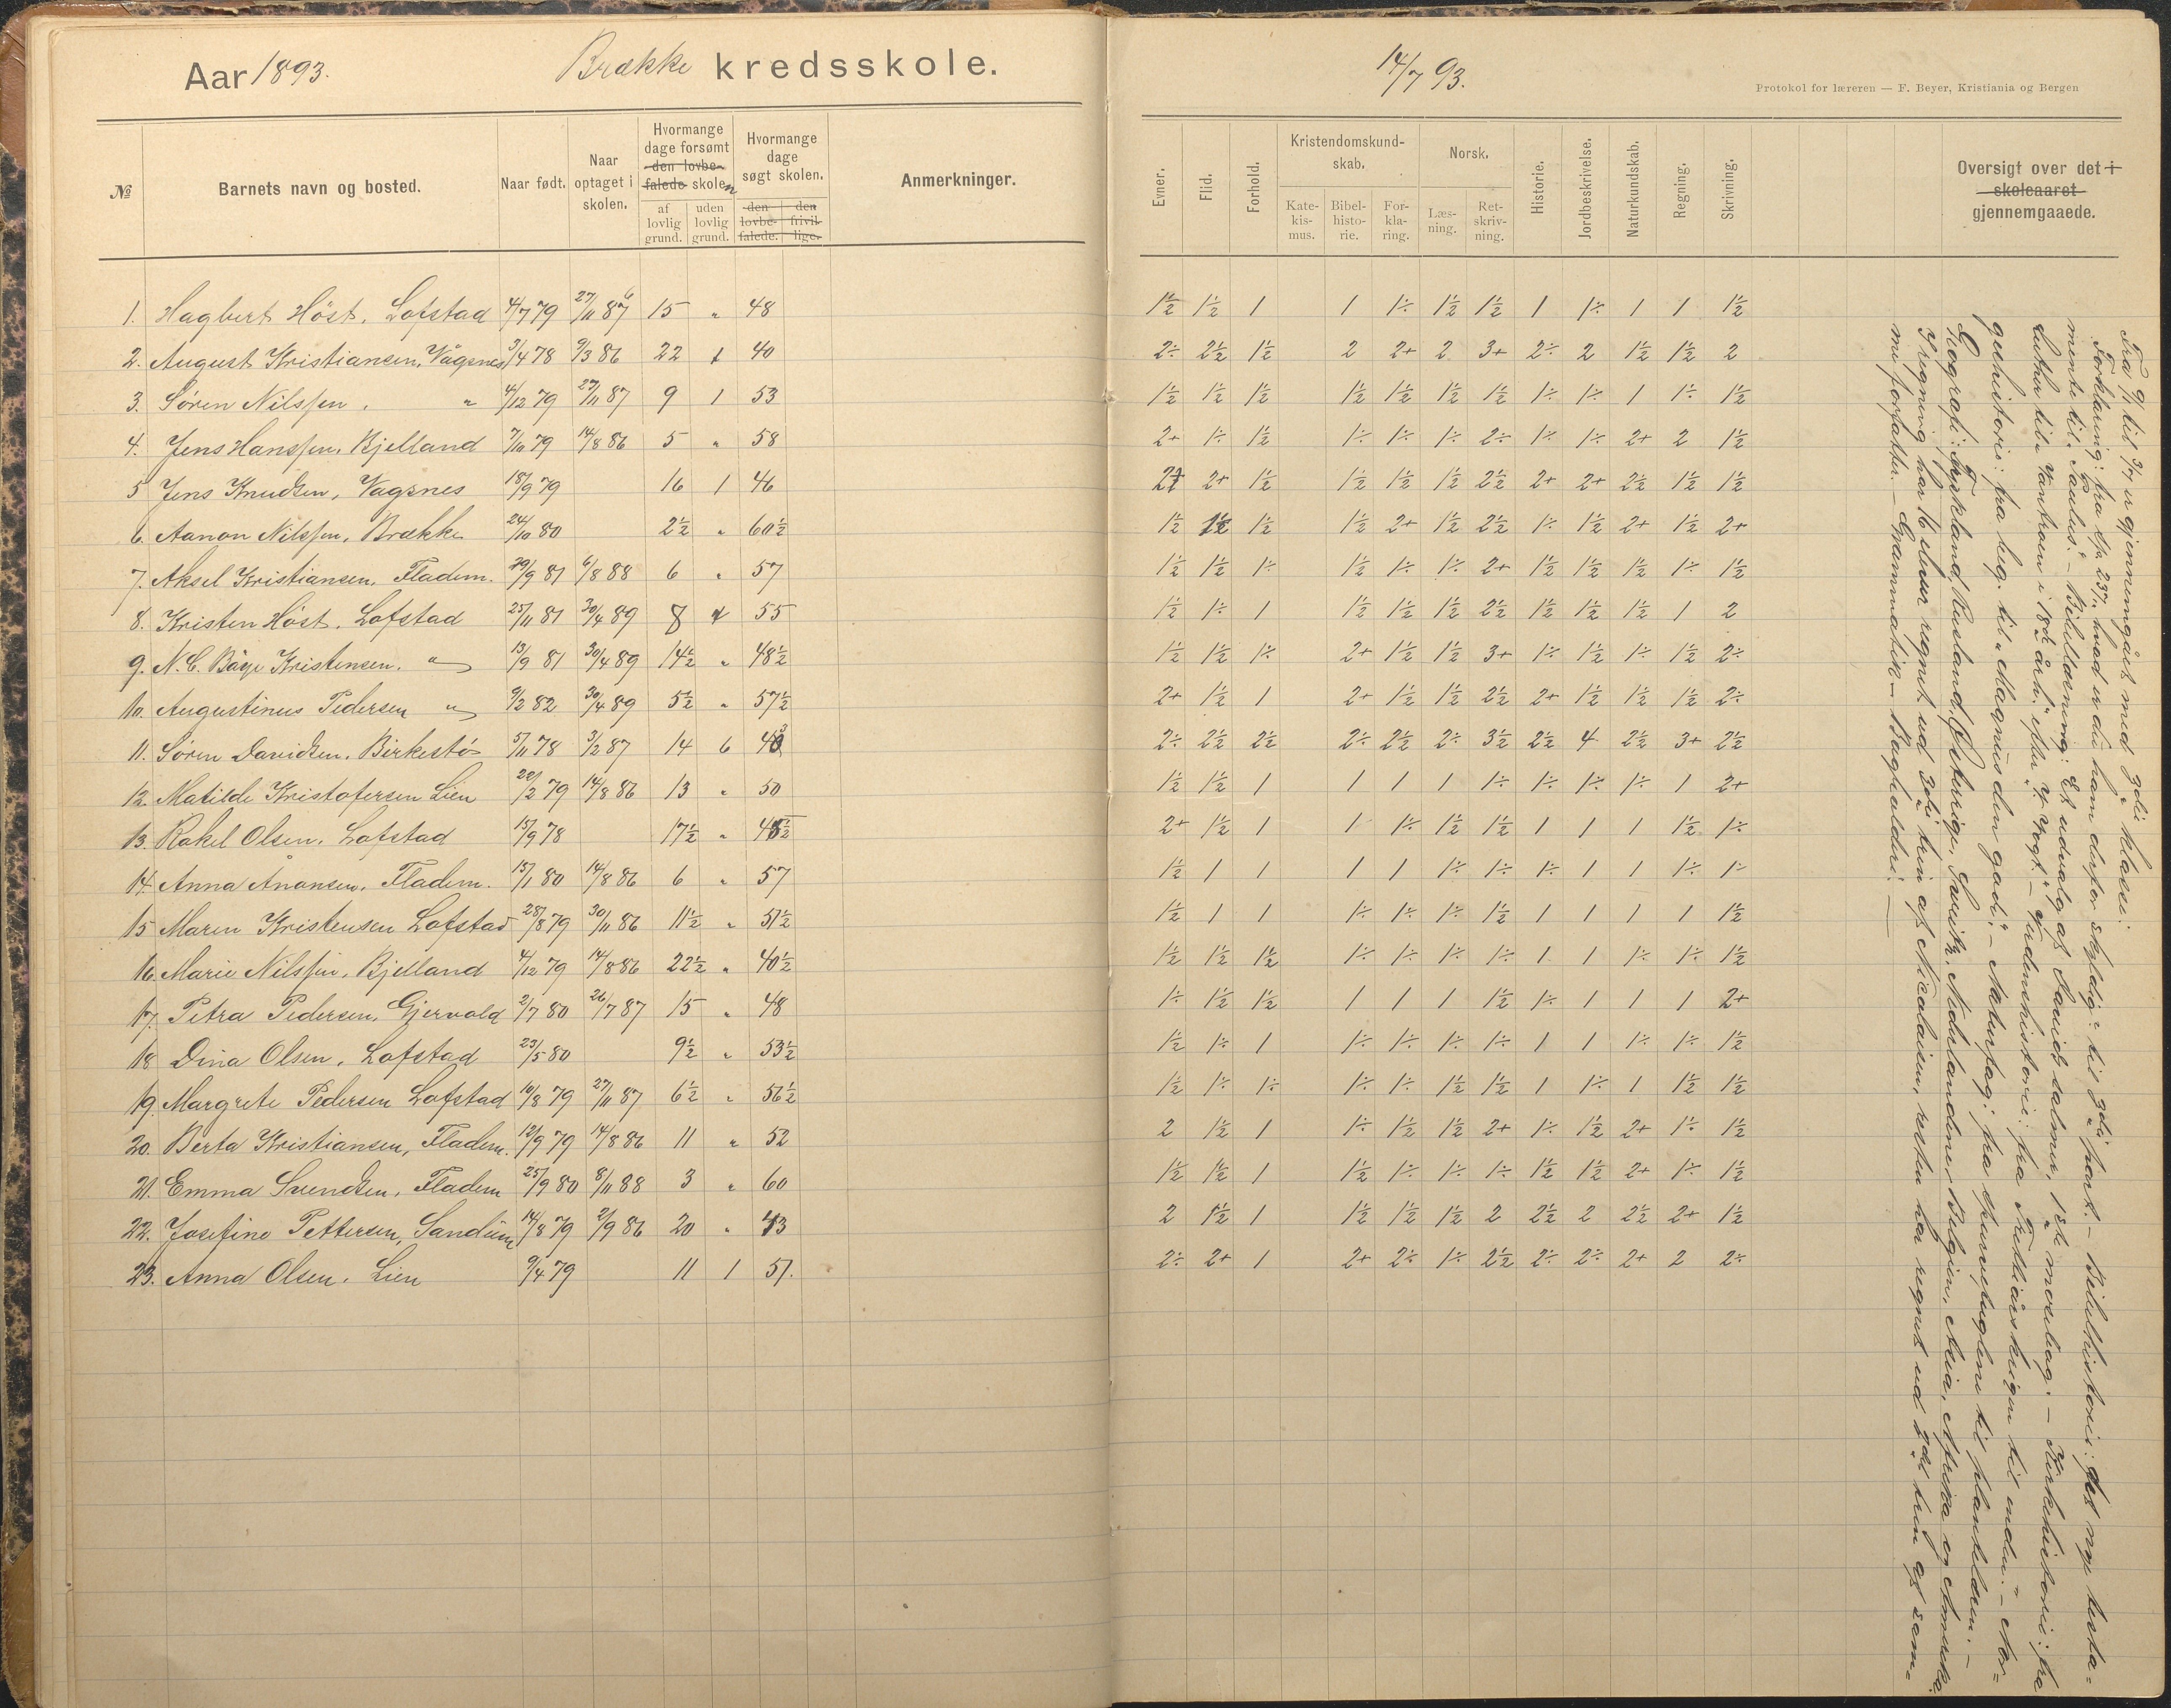 Aar 1893. Brække kredsskole.
№ Barnets navn og bosted. Naar født. Naar optaget i skolen. Hvormange dage forsømt den lovbefalede skolen af lovlig grund. uden lovlig grund. Hvormange dage søgt skolen. den lovbefalede. den frivillige. Anmerkninger.
1. Hagbert Höst. Lofstad 4/7 79 27/11 87 15 " 48
2. August Kristiansen, Vågsnes 3/4 78 9/3 86 22 1 40
3. Sören Nilssen. " 4/12 79 27/11 87 9 1 53
4. Jens Hanssen, Bjelland 7/10 79 14/8 86 5 " 58
5 Jens Knudsen, Vagsnes 18/9 79 16 1 46
6. Aanon Nilssen, Brække 24/10 80 2½ " 60½
7. Aksel Kristiansen, Fladem. 29/9 81 6/8 88 6 " 57
8. Kristen Höst. Lofstad 25/11 81 30/4 89 8 55
9. N. C. Båye Kristensen. " 13/9 81 30/4 89 14½ " 48½
10. Augustinus Pedersen " 9/2 82 30/4 89 5½ " 57½
11. Sören Davidsen. Birkestö 5/11 78 3/2 87 14 6 43
12. Matilde Kristofersen Lien 22/2 79 14/8 86 13 " 50
13. Rakel Olsen. Lofstad 15/9 78 17½ " 45½
14. Anna Ånonsen. Fladem. 15/1 80 14/8 86 6 " 57
15 Maren Kristensen Lofstad 28/8 79 30/11 86 11½ " 51½
16. Marie Nilssen. Bjelland 4/12 79 14/8 86 22½ " 40½
17. Petra Pedersen, Gjervold 2/7 80 26/7 87 15 " 48
18 Dina Olsen. Lofstad 23/5 80 9½ " 53½
19. Margrete Pedersen Lofstad 10/8 79 27/11 87 6½ " 56½
20. Berta Kristiansen, Fladem. 12/9 79 14/8 86 11 " 52
21. Emma Svendsen. Fladem 25/9 80 8/11 88 3 " 60
22. Josefine Pettersen, Sandum 14/8 79 2/9 86 20 " 43
23. Anna Olsen. Lien 9/4 79 11 1 51.
14/7 93.
Protokol for læreren — F. Beyer, Kristiania og Bergen
Evner. Flid. Forhold. Kristendomskundskab. Katekismus. Bibelhistorie. Forklaring. Norsk. Læsning. Retskrivning. Historie. Jordbeskrivelse. Naturkundskab. Regning. Skrivning. Oversigt over det i skoleaaret gjennemgaaede.
1½ 1½ 1 1 1÷ 1½ 1½ 1 1÷ 1 1 1½
2÷ 2½ 1½ 2 2+ 2 3+ 2÷ 2 1½ 1½ 2
1½ 1½ 1½ 1½ 1½ 1½ 1½ 1÷ 1÷ 1 1÷ 1½
2+ 1÷ 1½ 1÷ 1÷ 1÷ 2÷ 1÷ 1÷ 2+ 2 1½
2+ 1½ 1½ 1½ 1½ 2½ 2+ 2+ 2½ 1½ 1½
1½ 1½ 1½ 1½ 2+ 1½ 2½ 1÷ 1½ 2+ 1½ 2+
1½ 1½ 1÷ 1½ 1÷ 1÷ 2+ 1½ 1½ 1½ 1÷ 1½
1½ 1÷ 1 1½ 1½ 1½ 2½ 1½ 1½ 1½ 1 2
1½ 1½ 1÷ 2+ 1½ 1½ 3+ 1÷ 1½ 1÷ 1½ 2÷
2+ 1½ 1 2+ 1½ 1½ 2½ 2+ 1½ 1½ 1½ 2÷
2÷ 2½ 2½ 2÷ 2½ 2÷ 3½ 2½ 4 2½ 3+ 2½
1½ 1½ 1 1 1 1 1÷ 1÷ 1÷ 1÷ 1 2+
2+ 1½ 1 1 1÷ 1½ 1½ 1 1 1 1½ 1÷
1½ 1 1 1 1 1÷ 1÷ 1÷ 1 1 1÷ 1÷
1½ 1 1 1÷ 1÷ 1÷ 1½ 1 1 1 1 1½
1½ 1½ 1½ 1÷ 1÷ 1÷ 1÷ 1 1 1÷ 1÷ 1½
1÷ 1½ 1½ 1 1 1 1½ 1÷ 1 1 1 2+
1½ 1÷ 1 1÷ 1÷ 1÷ 1÷ 1 1 1÷ 1÷ 1½
1½ 1÷ 1÷ 1÷ 1÷ 1½ 1½ 1 1÷ 1 1½ 1½
2 1½ 1 1÷ 1½ 1½ 2+ 1÷ 1½ 2+ 1÷ 1½
1½ 1½ 1 1½ 1÷ 1÷ 1÷ 1½ 1½ 2+ 1÷ 1½
2 1½ 1 1½ 1½ 1½ 2 2½ 2 2½ 2+ 1½
2÷ 2+ 1 2+ 2÷ 1÷ 2½ 2÷ 2÷ 2+ 2 2÷
Fra 9/1 til 3/7 er gjennemgået med 3die klasse:
Forklaring: fra sp. 237: "hvad er du ham derfor skyldig" til 3die part. – Bibelhistorie: det nye testa=
mente til "Paulus". – Bibellæsning: Et udvalg af Davids salmer, 1ste mosebog. – Kirkehistorie: fra
Luther til "Vantroen i 18de årh." efter "V. Vogt". – Verdenshistorie: fra Trediveårskrigen til enden. – Nor=
geshistorie: fra beg. til "Magnus den gode". – Naturfag: fra spurvefuglene til plantelæren. –
Geografi: Tyskland, Rusland, Østerrige, Sveits, Nederlandene, Belgien, Asia, Afrika og Amerika.
I regning har 16 elever regnet ud 3die trin af Nicolaisen, resten har regnet ud 2det trin af sam=
me forfatter. – Grammatik – Bogholderi. —